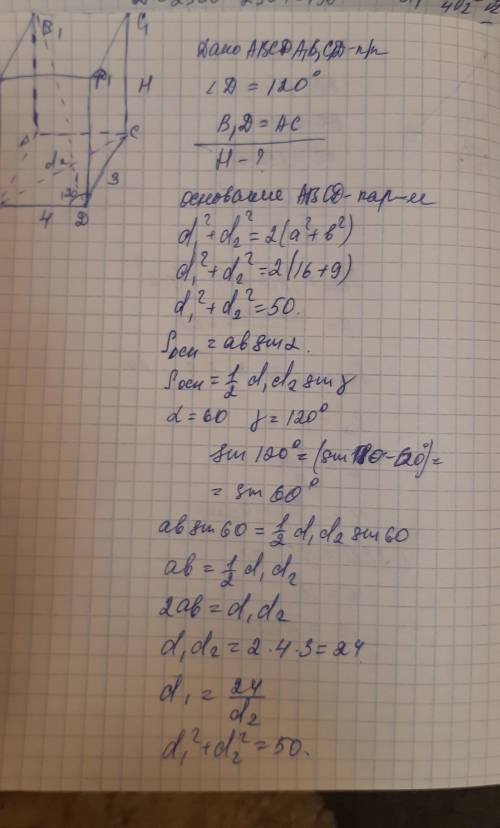 B₁
C₁
D₁
H
C
d₂
3
120
4
D
Дано ABCDA₁B₁C₁D - пр
∠D = 120°
B₁D = AC
H - ?
основание ABCD - пар-м
d₁² + d₂² = 2(a² + b²)
d₁² + d₂² = 2(16 + 9)
d₁² + d₂² = 50.
Sосн = ab sin α.
Sосн = 1/2 d₁ d₂ sin γ
α = 60 γ = 120°
sin 120° = (sin 180 - 60°) =
= sin 60°
ab sin 60 = 1/2 d₁ d₂ sin 60
ab = 1/2 d₁ d₂
2ab = d₁ d₂
d₁ d₂ = 2 · 4 · 3 = 24
d₁ = 24/d₂
d₁² + d₂² = 50.